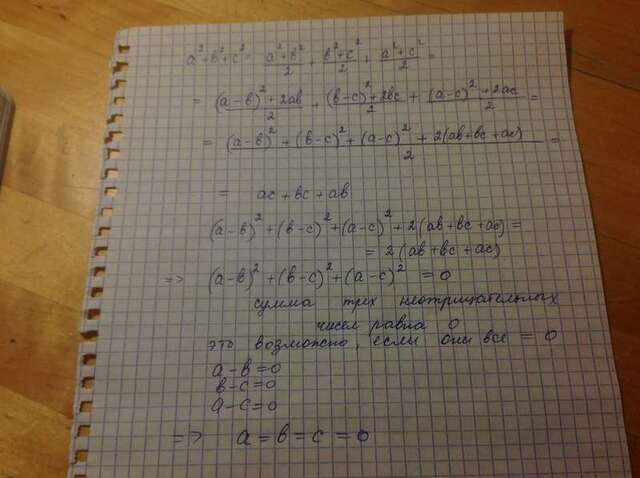 a²+в²+c² = (a²+в²)/2 + (в²+c²)/2 + (a²+c²)/2 =
= ((a-в)²+2ав)/2 + ((в-c)²+2вc)/2 + ((a-c)²+2ac)/2 =
= ((a-в)²+(в-c)²+(a-c)²+2(ав+вc+ac))/2 =
= ac+вc+ав
(a-в)²+(в-c)²+(a-c)²+2(ав+вc+ac)=
= 2(ав+вc+ac)
=> (a-в)²+(в-c)²+(a-c)² = 0
сумма трех неотрицательных
чисел равна 0
это возможно, если они все = 0
a-в=0
в-c=0
a-c=0
=> a=в=c=0